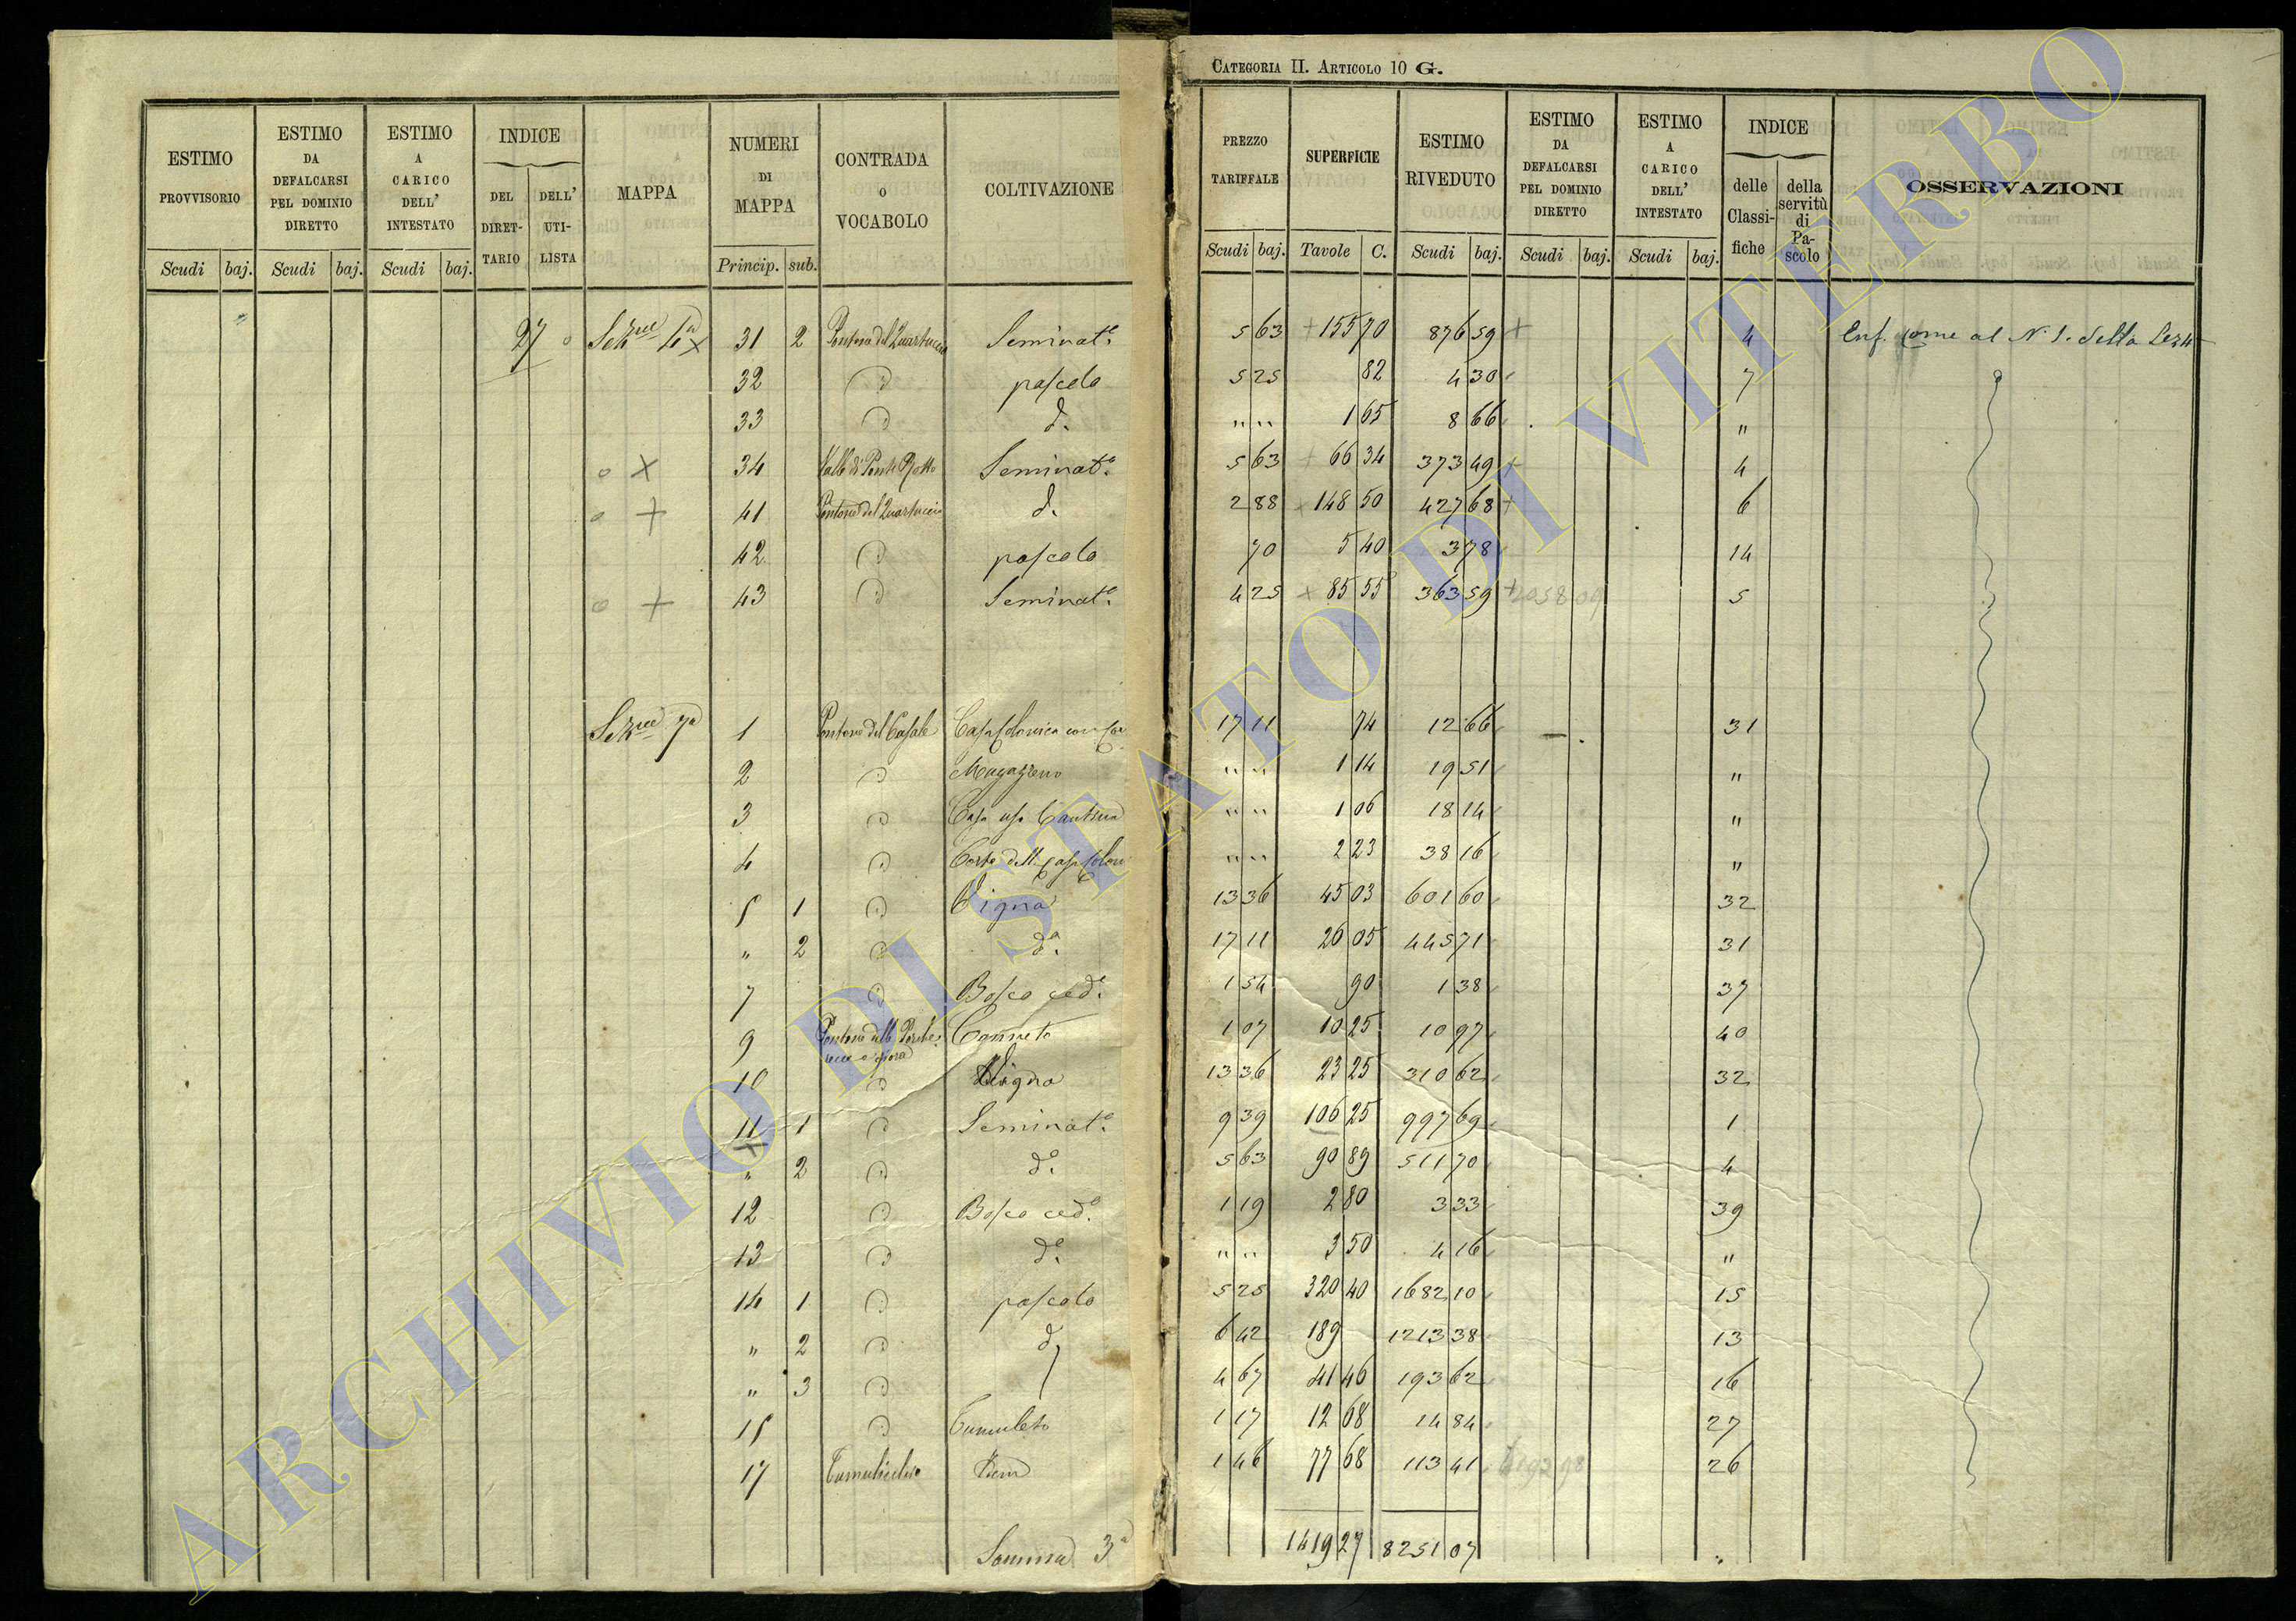 CATEGORIA II. ARTICOLO 10 G.
ESTIMO PROVVISORIO | ESTIMO DA DEFALCARSI PEL DOMINIO DIRETTO | ESTIMO A CARICO DELL' INTESTATO | INDICE | MAPPA | NUMERI DI MAPPA | CONTRADA O VOCABOLO | COLTIVAZIONE | PREZZO TARIFFALE | SUPERFICIE | ESTIMO RIVEDUTO | ESTIMO DA DEFALCARSI PEL DOMINIO DIRETTO | ESTIMO A CARICO DELL' INTESTATO | INDICE | OSSERVAZIONI
DEL DIRETTARIO | DELL' UTILISTA | delle Classifiche | della servitù di Pascolo
Scudi | baj. | Scudi | baj. | Scudi | baj. | Princip. | sub. | Scudi | baj. | Tavole | C. | Scudi | baj. | Scudi | baj. | Scudi | baj.
27 Sezne 4a x 31 2 Pontone del Quartuccio Seminato. 5 63 + 155 70 876 59 + 4 Enf. come al N. 1. della Sez 4
32 D pascolo 5 25 82 4 30 7
33 D d. " " 1 65 8 66 "
o x 34 Valle di Ponte Rotto Seminato. 5 63 + 66 34 373 49 + 4
o + 41 Pontone del Quartuccio d. 2 88 x 148 50 427 68 + 6
42 D pascolo 70 5 40 3 78 14
o + 43 D Seminato. 4 25 x 85 55 363 59 + 2058 09 5
Sezne 7a 1 Pontone del Casale Casa colonica con 17 11 74 12 66 31
2 D Magazzeno " " 1 14 19 51 "
3 D Casa uso Cantina " " 1 06 18 14 "
4 D Corte della casa colon " " 2 23 38 16 "
5 1 D Vigna 13 36 45 03 601 60 32
" 2 D da. 17 11 26 05 445 71 31
7 D Bosco ced. 1 54 90 1 38 37
9 Pontone delle Canneto 1 07 10 25 10 97 40
10 D Vigna 13 36 23 25 310 62 32
11 1 D Seminato. 9 39 106 25 997 69 1
x
" 2 D do. 5 63 90 89 511 70 4
12 D Bosco ced. 1 19 2 80 3 33 39
13 D do. " " 3 50 4 16 "
14 1 D pascolo 5 25 320 40 1682 10 15
" 2 D d 6 42 189 1213 38 13
" 3 D 4 67 41 46 193 62 16
15 D Tumuleto 1 17 12 68 14 84 27
17 Idem 1 46 77 68 113 41 6192 98 26
Somma 3a 1419 27 8251 07
ARCHIVIO DI STATO DI VITERBO